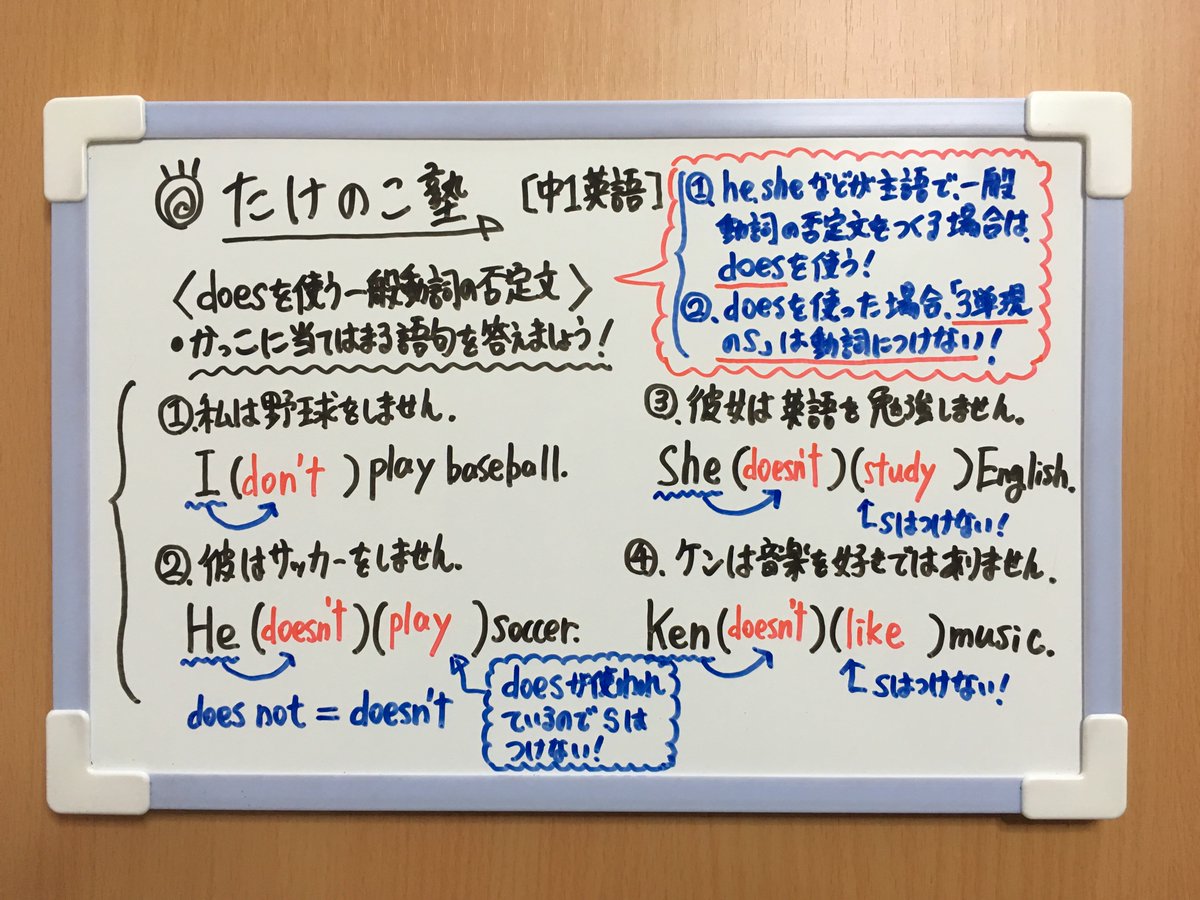 たけのこ塾 [中1英語]
①. he, sheなどが主語で、一般
動詞の否定文をつくる場合は、
doesを使う!
②. doesを使った場合、「3単現
のS」は動詞につけない!
〈doesを使う一般動詞の否定文〉
・かっこに当てはまる語句を答えましょう!
①. 私は野球をしません.
I (don't) play baseball.
②. 彼はサッカーをしません.
He (doesn't)(play) soccer.
does not = doesn't
doesが使われ
ているのでSは
つけない!
③. 彼女は英語を勉強しません.
She (doesn't)(study) English.
Sはつけない!
④. ケンは音楽を好きではありません.
Ken (doesn't)(like) music.
Sはつけない!